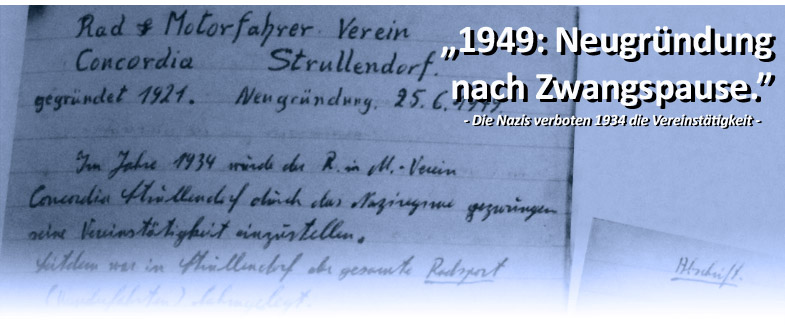 „1949: Neugründung
nach Zwangspause.”
- Die Nazis verboten 1934 die Vereinstätigkeit -
Rad & Motorfahrer Verein
Concordia Strullendorf.
gegründet 1921. Neugründung. 25.6.1949
Im Jahre 1934 wurde der R. u M.-Verein
Concordia Strullendorf durch das Naziregime gezwungen
seine Vereinstätigkeit einzustellen.
Seitdem war in Strullendorf der gesamte Radsport
Abschrift.